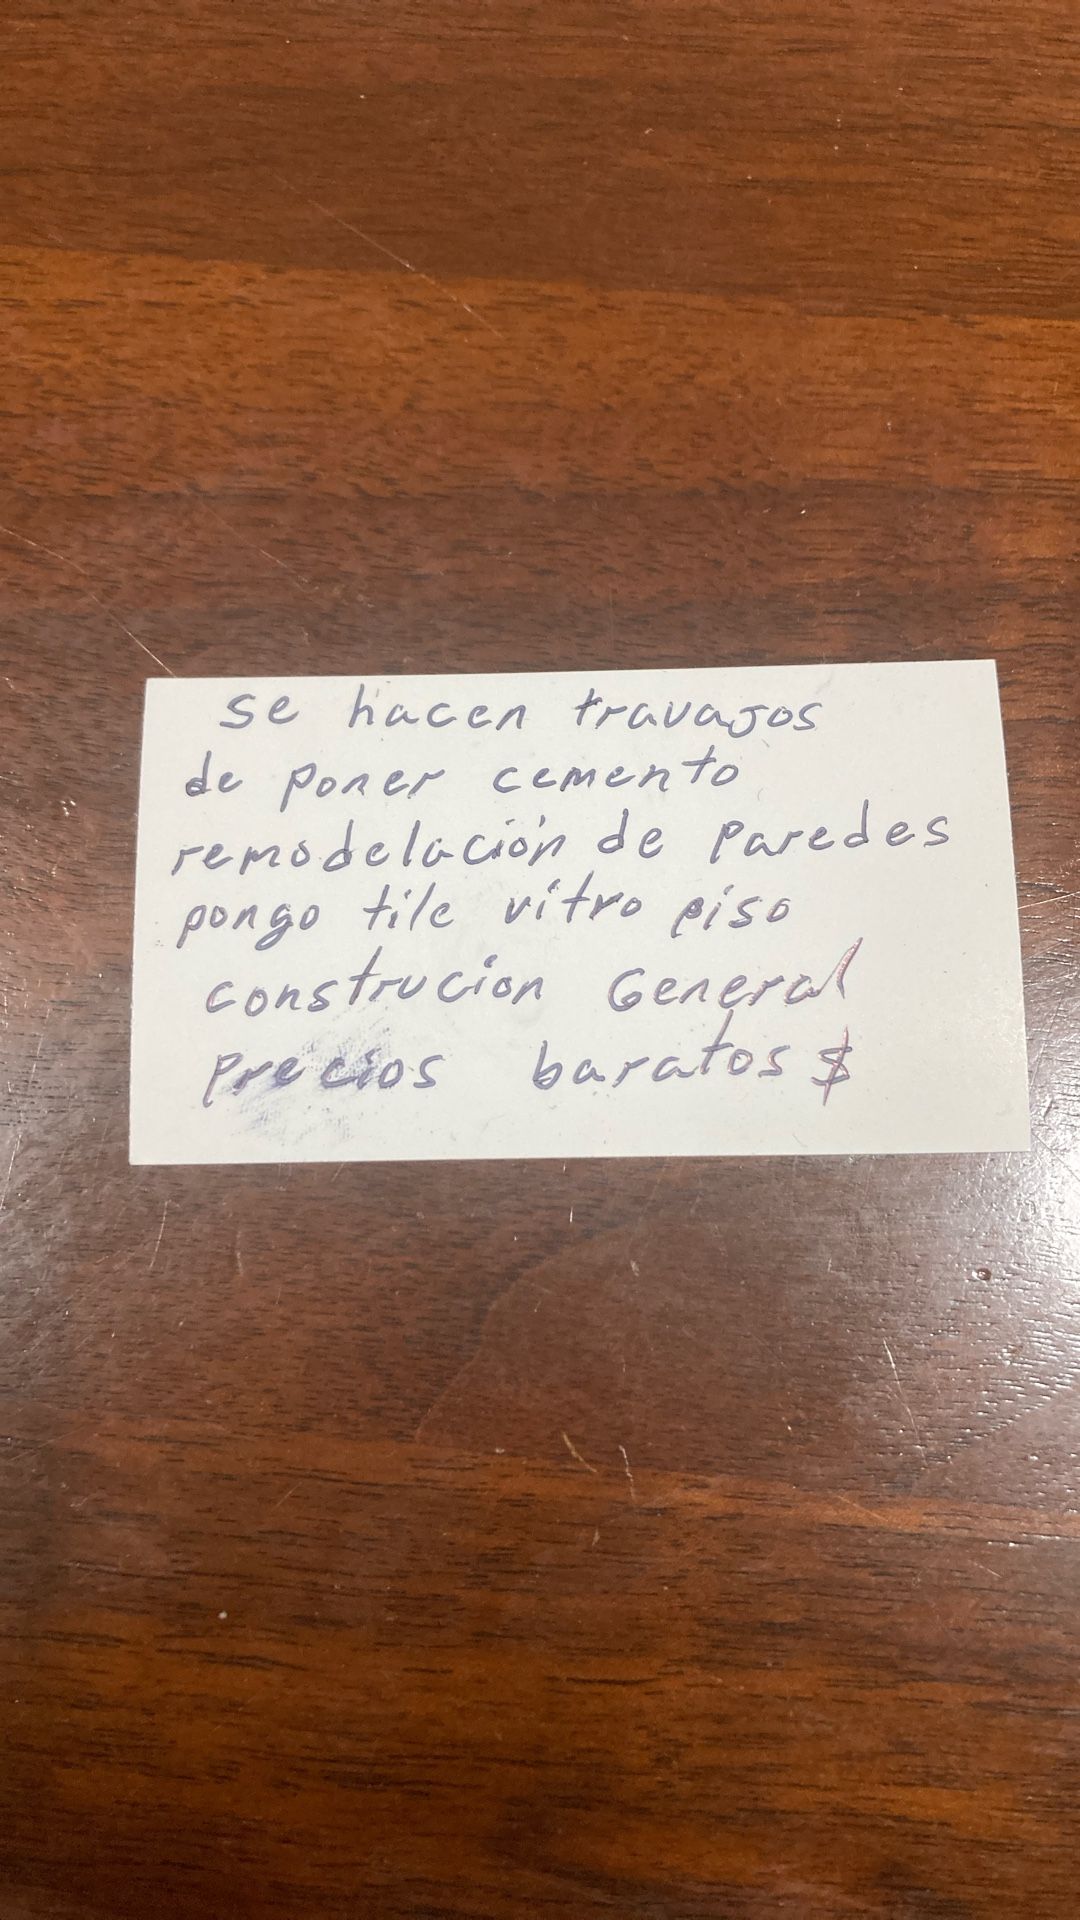 se hacen travajos
de poner cemento
remodelación de paredes
pongo tile vitro piso
construcion General
precios baratos $